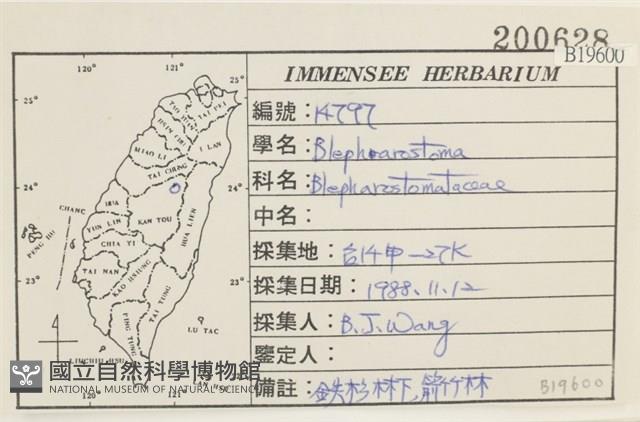 200628
B19600
IMMENSEE HERBARIUM
編號：14797
學名：Blepharostoma
科名：Blepharostomataceae
中名：
採集地：台14甲—27K
採集日期：1988.11.12
採集人：B.J.Wang
鑒定人：
備註：鉄杉林下,箭竹林
B19600
120° 121°
25° 25°
TAO YUAN
TAI PEI
HSIN CHU
I LAN
MIAO LI
TAI CHUNG
24° 24°
CHANG HUA
NAN TOU
YUN LIN
HUA LIEN
PENG HU
CHIA YI
TAI NAN
KAO HSIUNG
23° 23°
TAI TUNG
PING TUNG
LU TAO
LIUCHIU HSU
LAN HSU
120° 121°
國立自然科學博物館
NATIONAL MUSEUM OF NATURAL SCIENCE